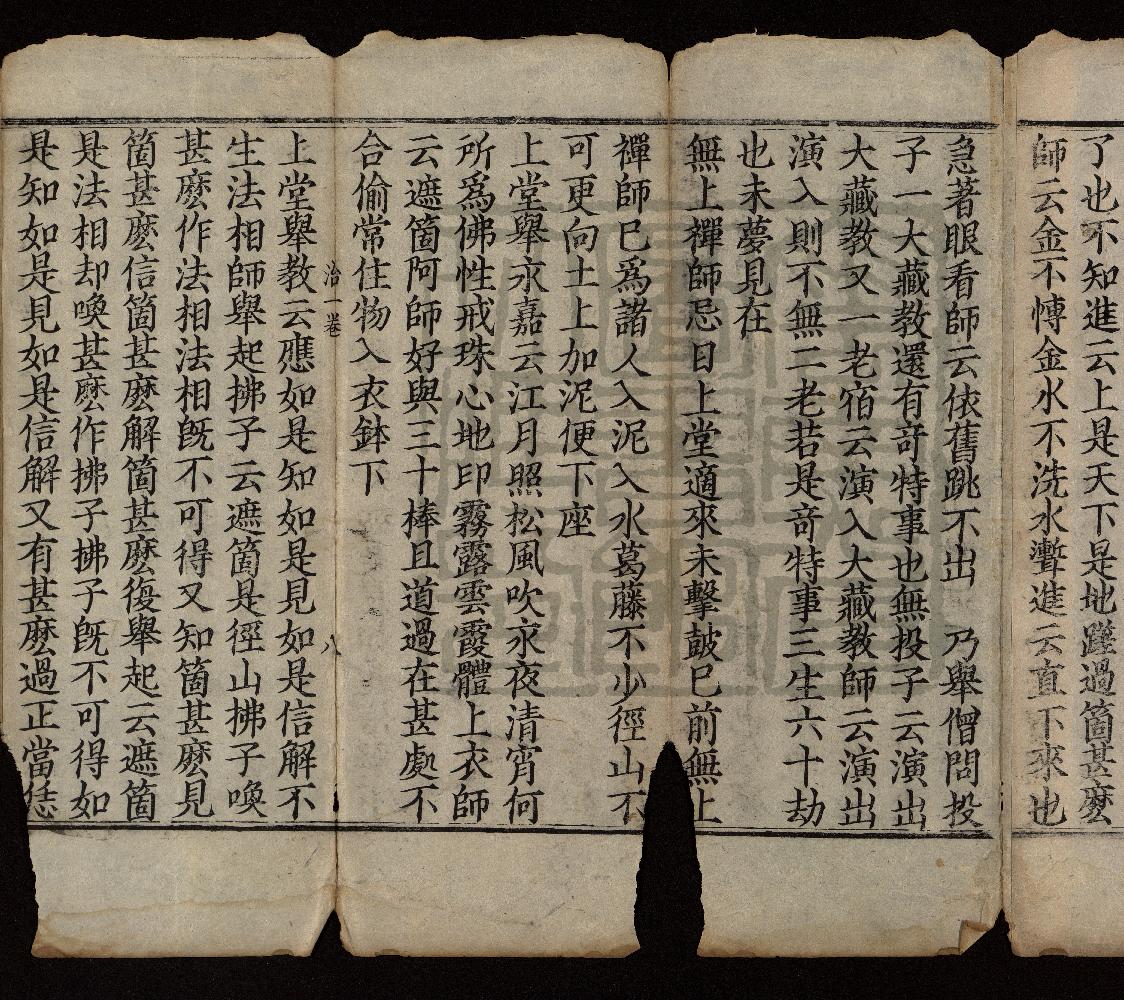 了也不知進云上是天下是地蹉過箇甚麽
師云金不愽金水不洗水瞥進云直下來也
急著眼看師云依舊跳不出　乃舉僧問投
子一大藏教還有奇特事也無投子云演出
大藏教又一老宿云演入大藏教師云演出
演入則不無二老若是奇特事三生六十劫
也未夢見在
無上禪師忌日上堂適來未擊皷已前無上
禪師已爲諸人入泥入水葛藤不少徑山不
可更向土上加泥便下座
上堂舉永嘉云江月照松風吹永夜清宵何
所爲佛性戒珠心地印霧露雲霞體上衣師
云遮箇阿師好與三十棒且道過在甚處不
合偷常住物入衣鉢下
治一卷　八
上堂舉教云應如是知如是見如是信解不
生法相師舉起拂子云遮箇是徑山拂子喚
甚麽作法相法相旣不可得又知箇甚麽見
箇甚麽信箇甚麽解箇甚麽復舉起云遮箇
是法相却喚甚麽作拂子拂子旣不可得如
是知如是見如是信解又有甚麽過正當恁